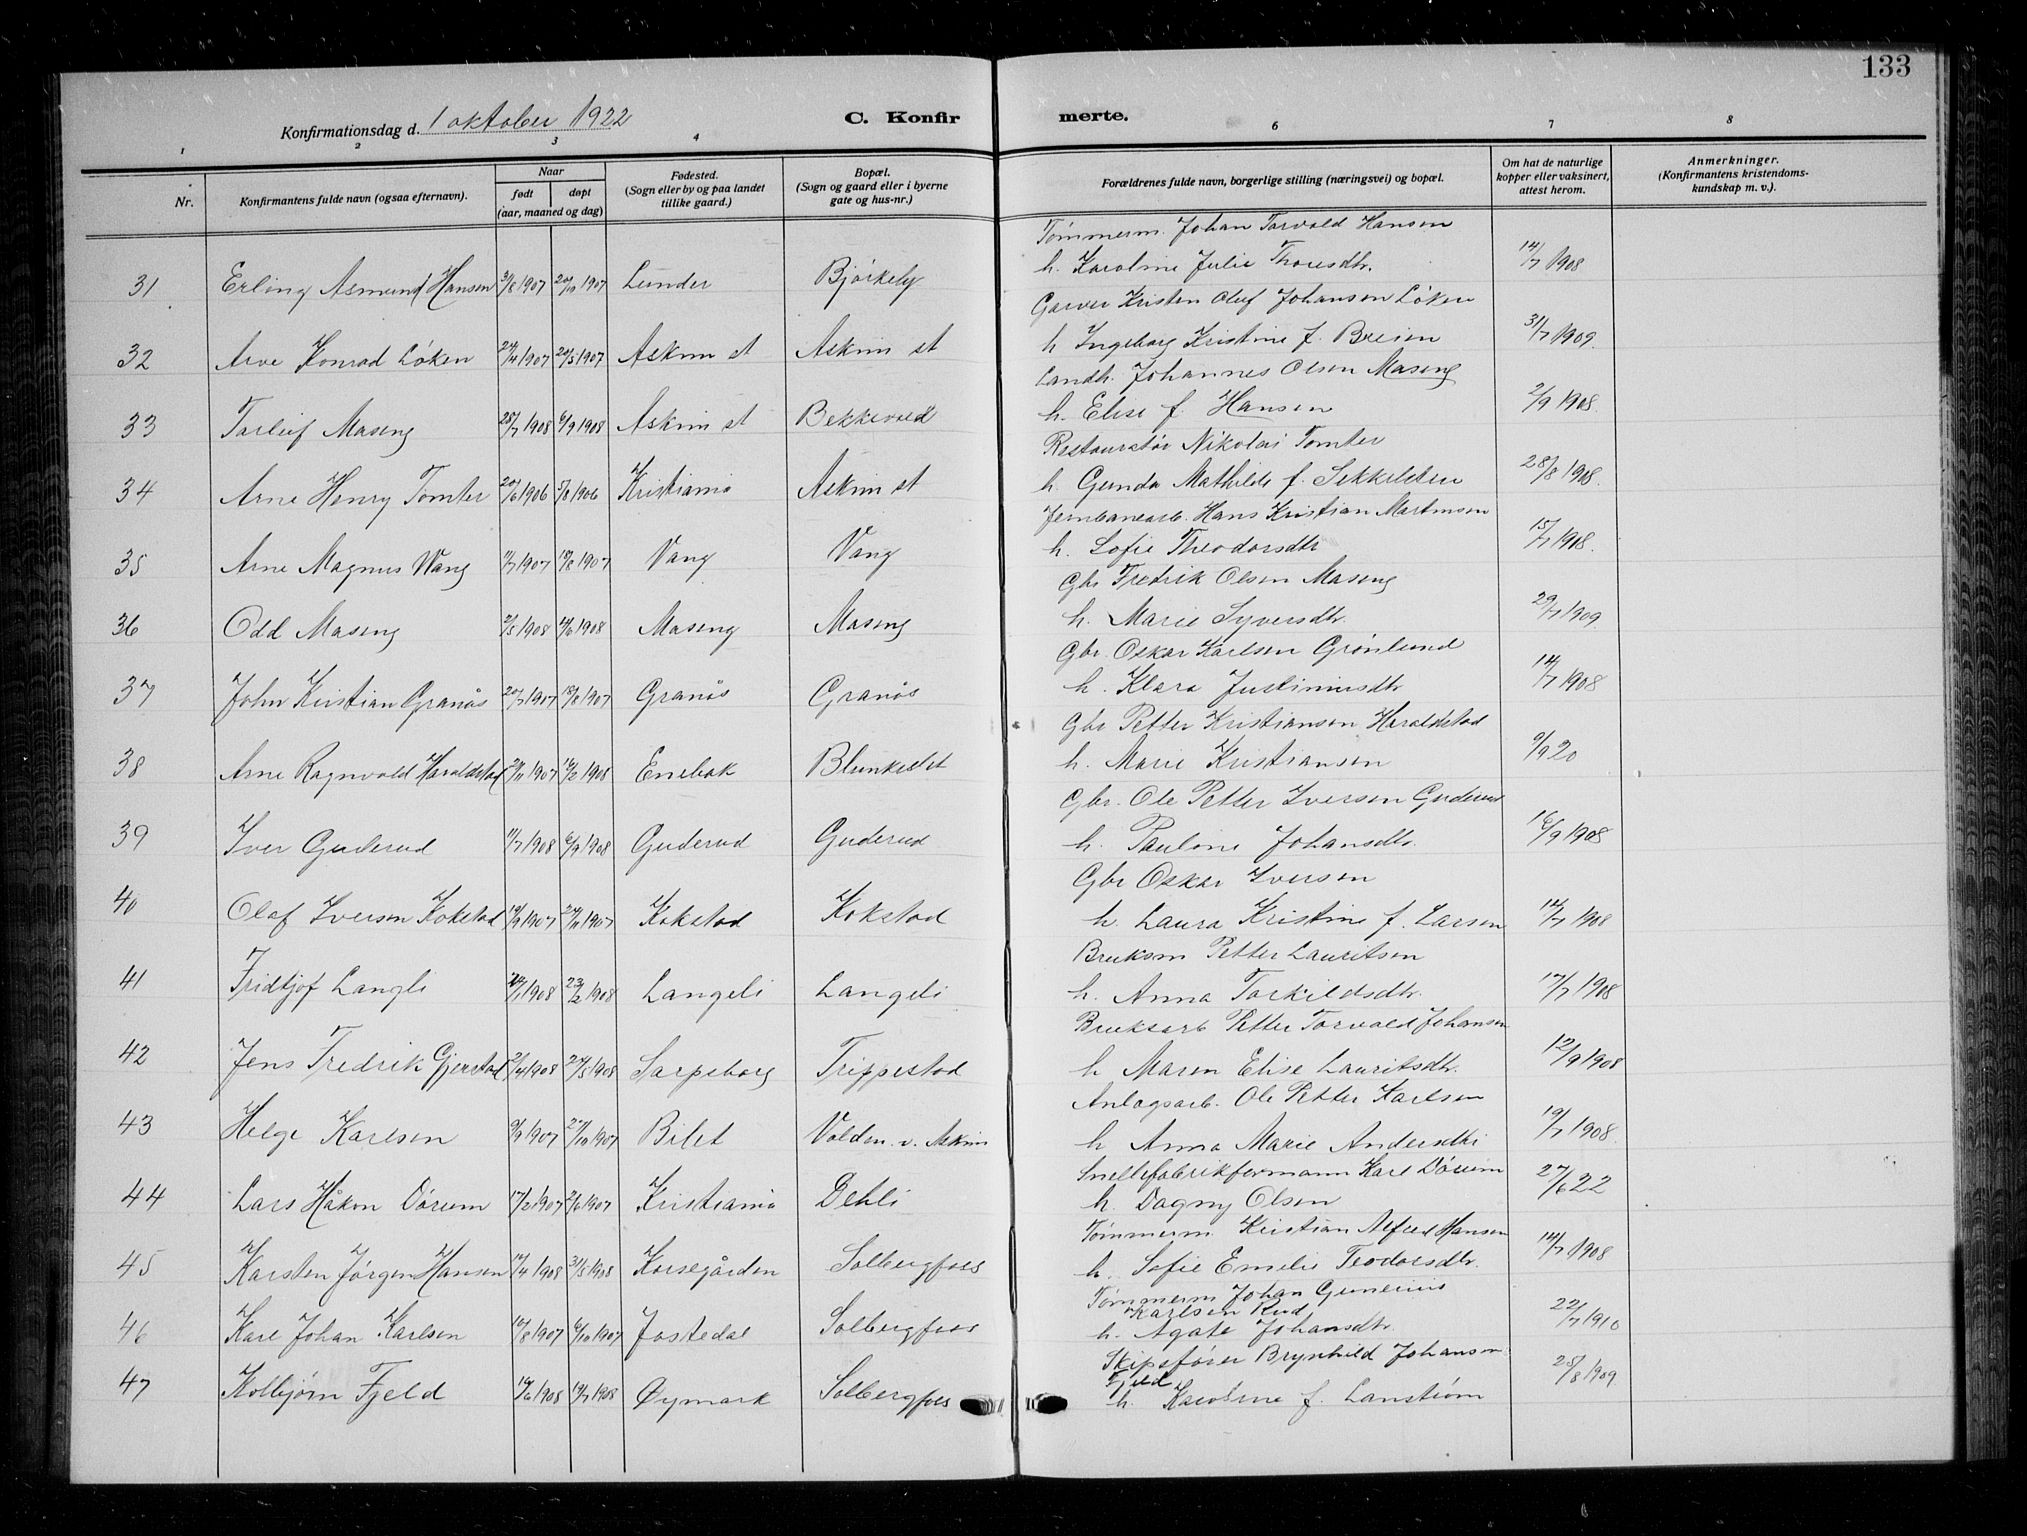 133
Konfirmationsdag d. 1 oktober 1922
C. Konfirmerte.
1 2 3 4 6 7 8
Nr.
Konfirmantens fulde navn (ogsaa efternavn).
Naar
født
døpt
(aar, maaned og dag)
Fødested.
(Sogn eller by og paa landet
tillike gaard.)
Bopæl.
(Sogn og gaard eller i byerne
gate og hus-nr.)
Forældrenes fulde navn, borgerlige stilling (næringsvei) og bopæl.
Om hat de naturlige
kopper eller vaksinert,
attest herom.
Anmerkninger.
(Konfirmantens kristendoms-
kundskap m. v.).
Tømmerm. Johan Torvald Hansen
31 Erling Asmund Hansen 31/8 1907 20/10 1907 Lunder Bjørkely h. Karoline Julie Thoresdtr. 14/7 1908
Garver Kristen Oluf Johansen Løken
32 Arve Konrad Løken 1907 1907 Askim st Askim st h Ingeborg Kristine f. Breien 31/7 1909.
Landh. Johannes Olsen Maseng
33 Torleif Maseng 28/7 1908 6/9 1908 Askim st Bekkevold h. Elise f. Hansen 2/9 1908.
Restauratør Nikolai Tomter
34 Arne Henry Tomter 20/6 1906 5/8 1906 Kristiania Askim st h. Gunda Mathilde f. Sekkelsten 28/8 1908.
Jernbanearb. Hans Kristian Martinsen
35 Arne Magnus Wang 1907 18/8 1907 Vang Vang h. Sofie Theodorsdtr 15/7 1908.
Gbr Fredrik Olsen Maseng
36 Odd Maseng 2/5 1908 1908 Maseng Maseng h. Marie Syversdtr. 29/7 1909
Gbr. Oskar Karlsen Grønlund
37 John Kristian Granås 20/7 1907 18/8 1907 Granås Granås h. Klara Justiniusdtr 14/7 1908
Gbr Petter Kristiansen Haraldstad
38 Arne Ragnvald Haraldstad 1907 16/2 1908 Enebak h. Marie Kristiansen 9/9 20
Gbr. Ole Petter Iversen Guderud
39 Iver Guderud 11/7 1908 6/9 1908 Guderud Guderud h. Pauline Johansdtr. 16/9 1908
Gbr Oskar Iversen
40 Olaf Iversen Kokstad 1907 24/11 1907 Kokstad Kokstad h. Laura Kristine f. Larsen 14/7 1908
Bruksm Petter Lauritsen
41 Fridtjof Langli 1908 23/2 1908 Langeli Langeli h. Anna Torkildsdtr. 17/7 1908
Bruksarb Petter Torvald Johansen
42 Jens Fredrik Gjerstad 2/4 1908 1908 Sarpsborg Trippestad h Maren Elise Lauritsdtr. 12/9 1908
Anlagsarb. Ole Petter Karlsen
43 Helge Karlsen 9/9 1907 27/10 1907 Bilet Volden v. Askim h Anna Marie Andersdtr 19/7 1908.
Snellefabrikformann Karl Dørum
44 Lars Håkon Dørum 17/2 1907 2/6 1907 Kristiania Dehli h. Dagny Olsen 27/6 22
Tømmerm. Kristian Alfred Hansen
45 Karsten Jørgen Hansen 1908 31/5 1908 Korsegården Solbergfoss h. Sofie Emelie Teodorsdtr. 14/7 1908
Tømmerm Johan Gunerius
Karlsen Rud
46 Karl Johan Karlsen 1907 6/10 1907 Jostedal Solbergfoss h. Agate Johansdtr. 22/7 1910
Skipsfører Brynhild Johansen
Fjeld
47 Kolbjørn Fjeld 1908 1908 Øymark Solbergfoss h. Karoline f. Lanstrøm 25/8 1909